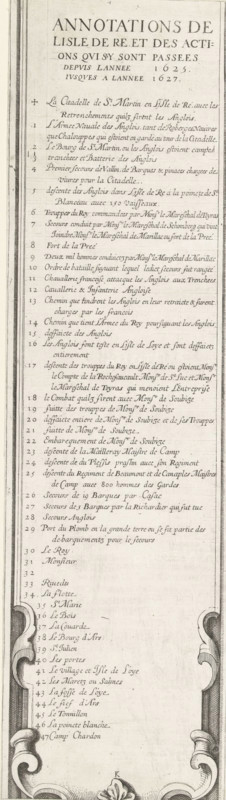 ANNOTATIONS DE
LISLE DE RE ET DES ACTI-
ONS QUI SY SONT PASSEES
DEPUIS LANNEE 1625.
IUSQUES A LANNEE 1627.
+ La Citadelle de St. Martin en lisle de Ré avec les
Retrenchemens qu'y firent les Anglois
1 L'Armee Navale des Anglois tant de
que Chalouppes qui estoient en garde au tour de la Citadelle.
2 Le Bourg de St. Martin ou les Anglois estoient campés
3 trenchees et Batterie des Anglois
4 Premier secours de Vallin de Barques te pinaces chargees de
vivres pour la Citadelle
5 descente des Anglois dans Lisle de Ré a la pointe de St.
Blanceau avec 150 Vaisseaux
6 Trouppe du Roy commandees par Monsr. le Mareschal de Toyras
7 Secours conduit par Monsr. le Mareschal de Schomberg qui vint
Joindre Monsr. le Mareschal de Marillac au fort de la Pree
8 Fort de la Pree
9 Deux mil hommes conduits par Monsr. le Mareschal de Marillac
10 Ordre de bataille suyvant lequel ledict secours fut rangee
11 Chavallerie françoise attaque les Anglois aux Trenchees
12 Cavallerie & Infanterie Angloise
13 Chemin que tindrent les Anglois en leur retraite & furent
charges par les francois
14 Chemin que tient l'Armee du Roy poursuyvant les Anglois
15 deffaicte des Anglois
16 Les Anglois font teste en Lisle de Loye et sont deffaicts
entierement
17 descente des trouppes du Roy en Lisle de Ré ou estoient Monsr.
le Compte de la Rochefoucault, Monsr. de St. Luc et Monsr.
le Mareschal de Toyras qui menoient l'entreprise
18 le Combat qu'y firent avec Monsr. de Soubize
19 fuitte des trouppes de Monsr. de Soubize
20 deffaicte entiere de Monsr. de Soubize et de ses Trouppes
21 fuitte de Monsr. de Soubize
22 Embarquement de Monsr. de Soubize
23 descente de la Milleraye Maistre de Camp
24 descente de du Plessis praslin avec son Regiment
25 descente du Regiment de Beaumont et de Canaples Maistres
de Camp avec 800 hommes des Gardes
26 Secours de 19 Barques par
27 Secours de 3 Barques par la Richardier qui fut tue
28 Secours Anglois
29 Port du Plomb en la grande terre ou se fit partie des
de barquements pour le secours
30 Le Roy
31 Monsieur
32
33 Rivedo
34 La flotte
35 St. Marie
36 Le Bois
37 La Couarde
38 Le Bourg d'Ars
39 St. Iulien
40 Les portes
41 Le village et Isle de Loye
42 Les Maretz ou Salines
43 La fosse de Loye
44 Le fief d'Ars
45 Le Tomillon
46 La pointe blanche
47 Camp Chardon